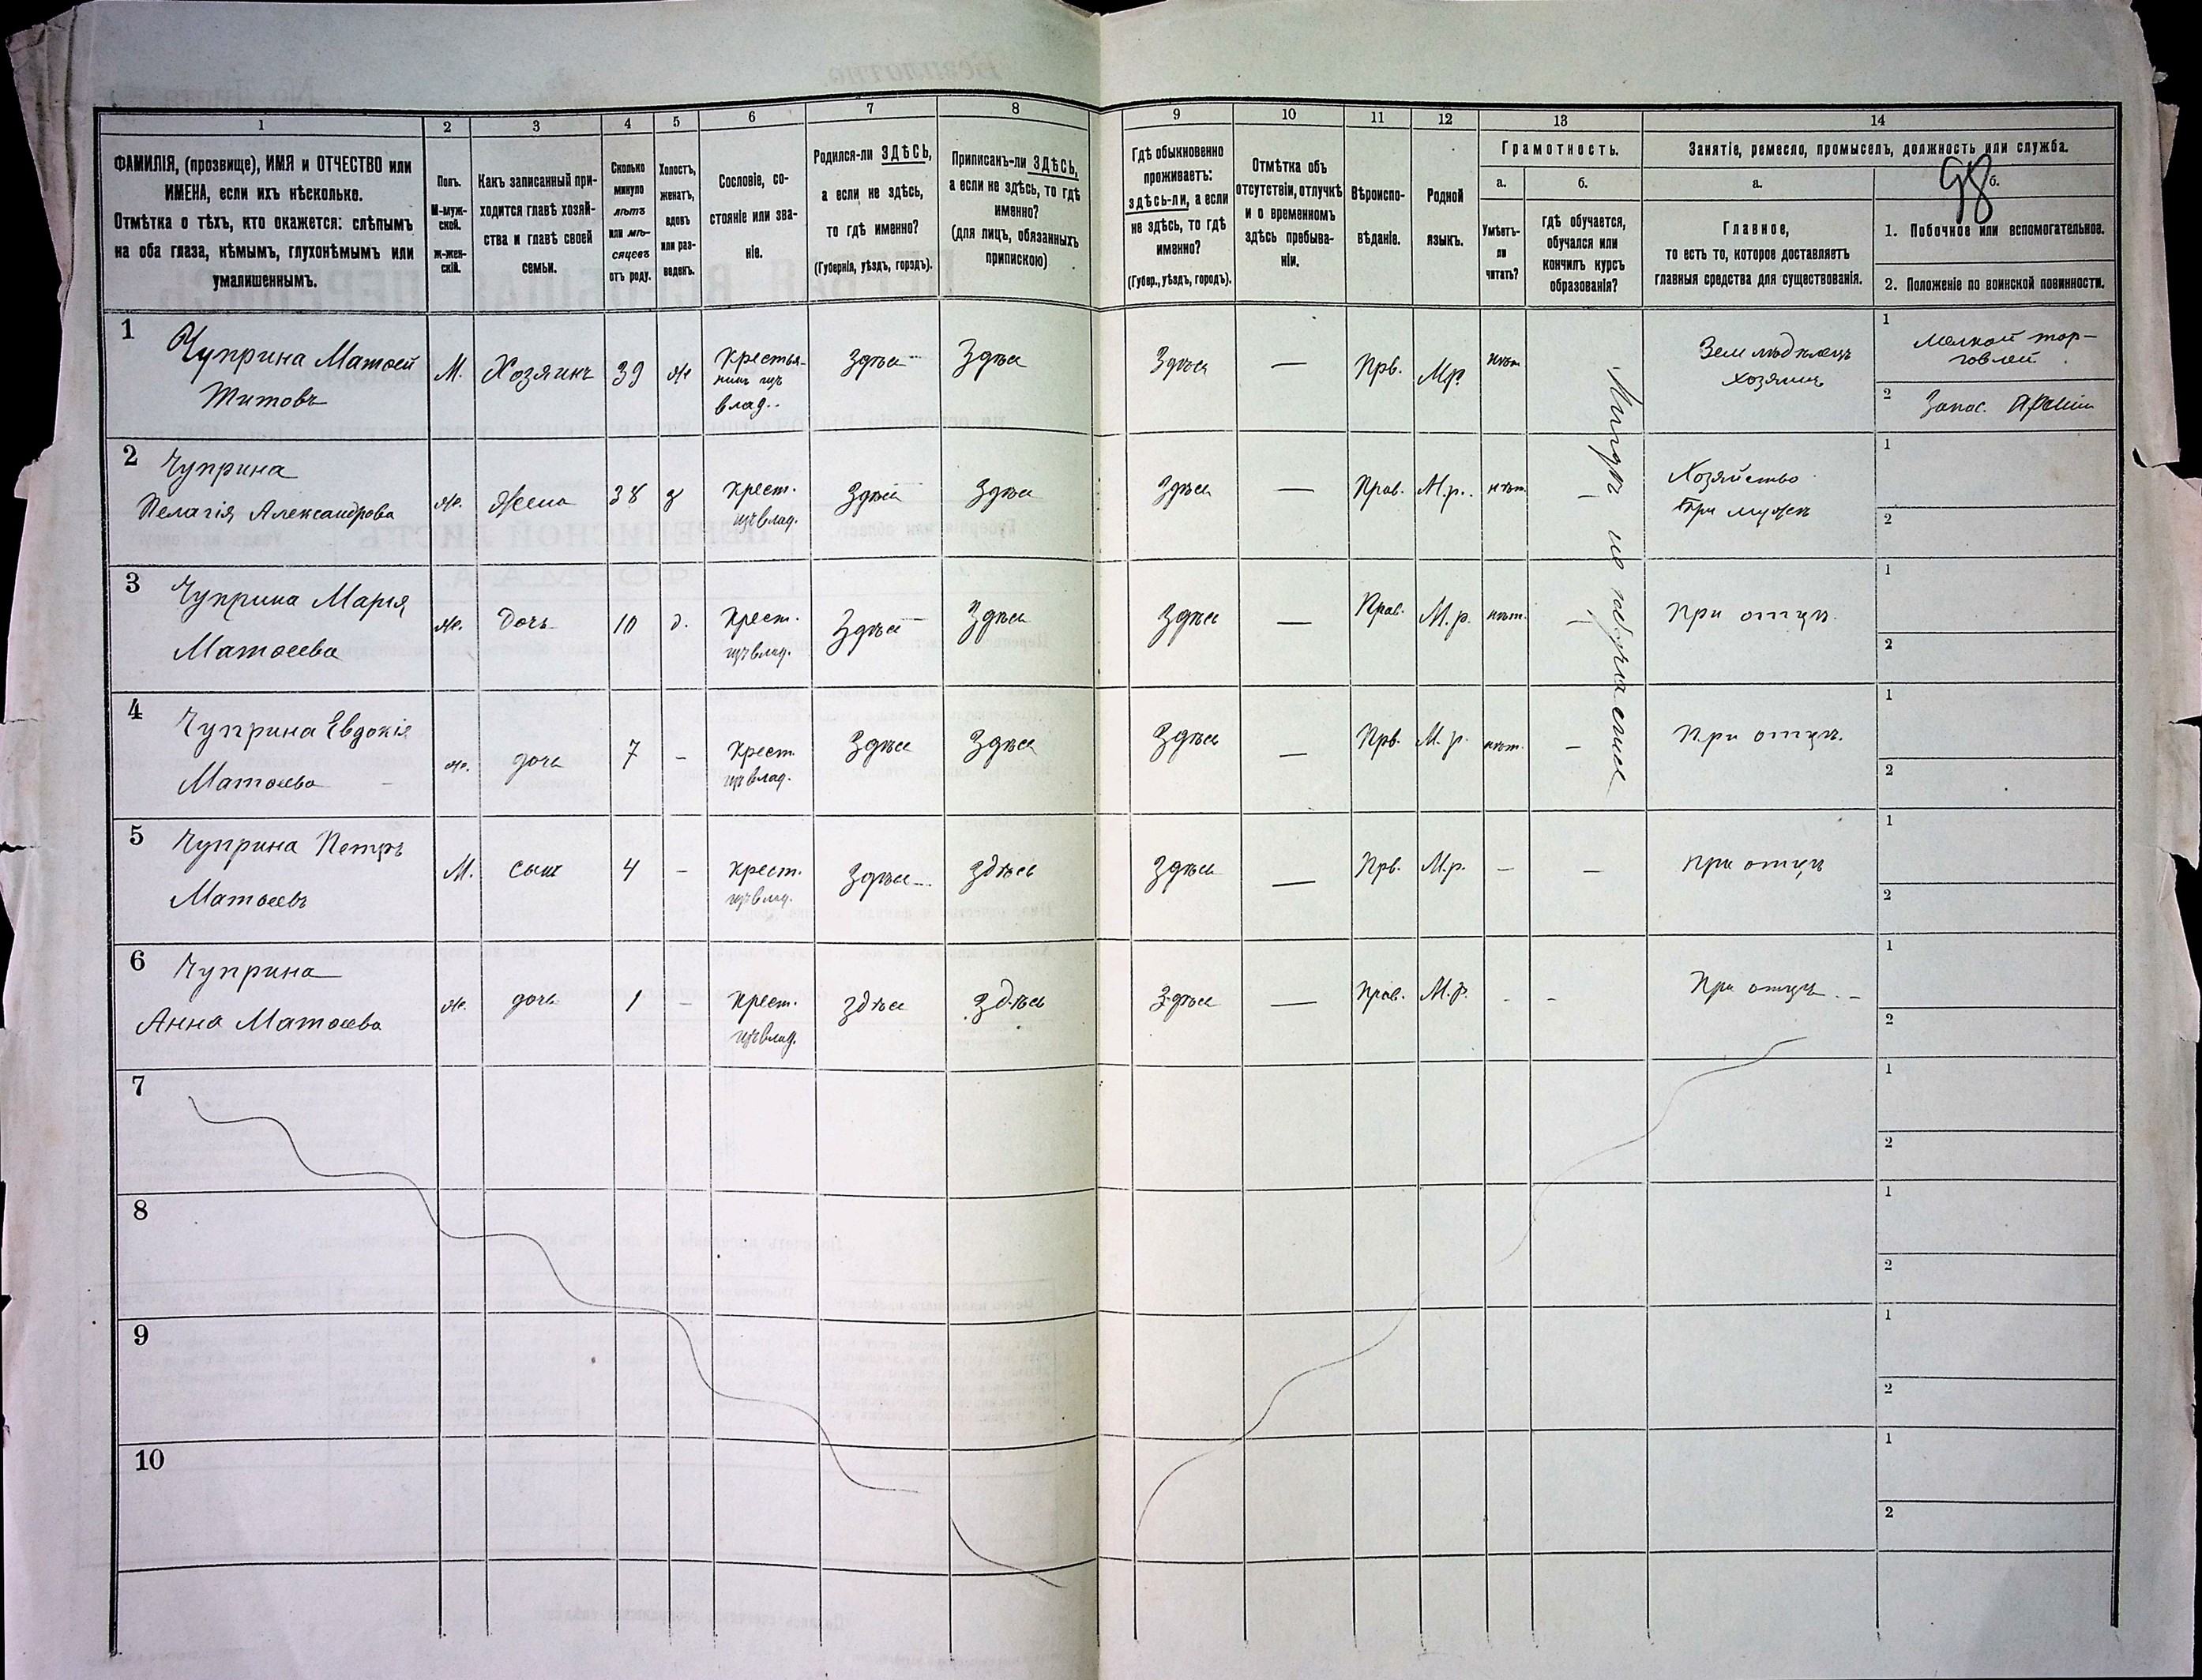 1
2
3
4
5
6
7
8
9
10
11
12
13
14
ФАМИЛІЯ, (прозвище), ИМЯ и ОТЧЕСТВО или
ИМЕНА, если ихъ нѣсколько.
Отмѣтка о тѣхъ, кто окажется: слѣпымъ
на оба глаза, нѣмымъ, глухонѣмымъ или
умалишеннымъ.
Полъ.
М-муж-
ской.
ж-жен-
скій.
Какъ записанный при-
ходится главѣ хозяй-
ства и главѣ своей
семьи.
Сколько
минуло
лѣтъ
или мѣ-
сяцевъ
отъ роду.
Холостъ,
женатъ,
вдовъ
или раз-
веденъ.
Сословіе, со-
стояніе или зва-
ніе.
Родился-ли ЗДѢСЬ,
а если не здѣсь,
то гдѣ именно?
(Губернія, уѣздъ, городъ).
Приписанъ-ли ЗДѢСЬ,
а если не здѣсь, то гдѣ
именно?
(для лицъ, обязанныхъ
припискою)
Гдѣ обыкновенно
проживаетъ:
здѣсь-ли, а если
не здѣсь, то гдѣ
именно?
(Губер., уѣздъ, городъ).
Отмѣтка объ
отсутствіи, отлучкѣ
и о временномъ
здѣсь пребыва-
ніи.
Вѣроиспо-
вѣданіе.
Родной
языкъ.
Грамотность.
а.
Умѣетъ-
ли
читать?
б.
гдѣ обучается,
обучался или
кончилъ курсъ
образованія?
Занятіе, ремесло, промыселъ, должность или служба.
а.
Главное,
то есть то, которое доставляетъ
главныя средства для существованія.
98
б.
1. Побочное или вспомогательное.
2. Положеніе по воинской повинности.
1
Чуприна Матѳей
Титовъ
М.
Хозяинъ
39
ж
Крестья-
нинъ изъ
влад.
Здѣсь
Здѣсь
Здѣсь
—
Прв.
М.р.
нѣт
Земледѣлецъ
хозяинъ
1
Мелкой тор-
говлей
2
Запас. Арміи
2
Чуприна
Пелагія Александрова
ж.
Жена
38
з
крест.
изъ влад.
Здѣсь
Здѣсь
Здѣсь
—
Прав.
М.р.
нѣт.
—
Хозяйство
При мужѣ
1
2
3
Чуприна Марія
Матѳеева
ж.
Дочь
10
д.
Крест.
изъ влад.
Здѣсь
Здѣсь
Здѣсь
—
Прав.
М.р.
нѣт.
—
При отцѣ.
1
2
4
Чуприна Евдокія
Матѳеева
ж.
дочь
7
–
Крест.
изъ влад.
Здѣсь
Здѣсь
Здѣсь
—
Прв.
М.р.
нѣт.
—
При отцѣ.
1
2
5
Чуприна Петръ
Матѳеевъ
М.
сынъ
4
–
Крест.
изъ влад.
Здѣсь
здѣсь
Здѣсь
—
Прв.
М.р.
–
–
При отцѣ
1
2
6
Чуприна
Анна Матѳеева
ж.
дочь
1
–
Крест.
изъ влад.
здѣсь
здѣсь
Здѣсь
—
Прав.
М.р.
-
-
При отцѣ.
1
2
Нигдѣ не
7
1
2
8
1
2
9
1
2
10
1
2